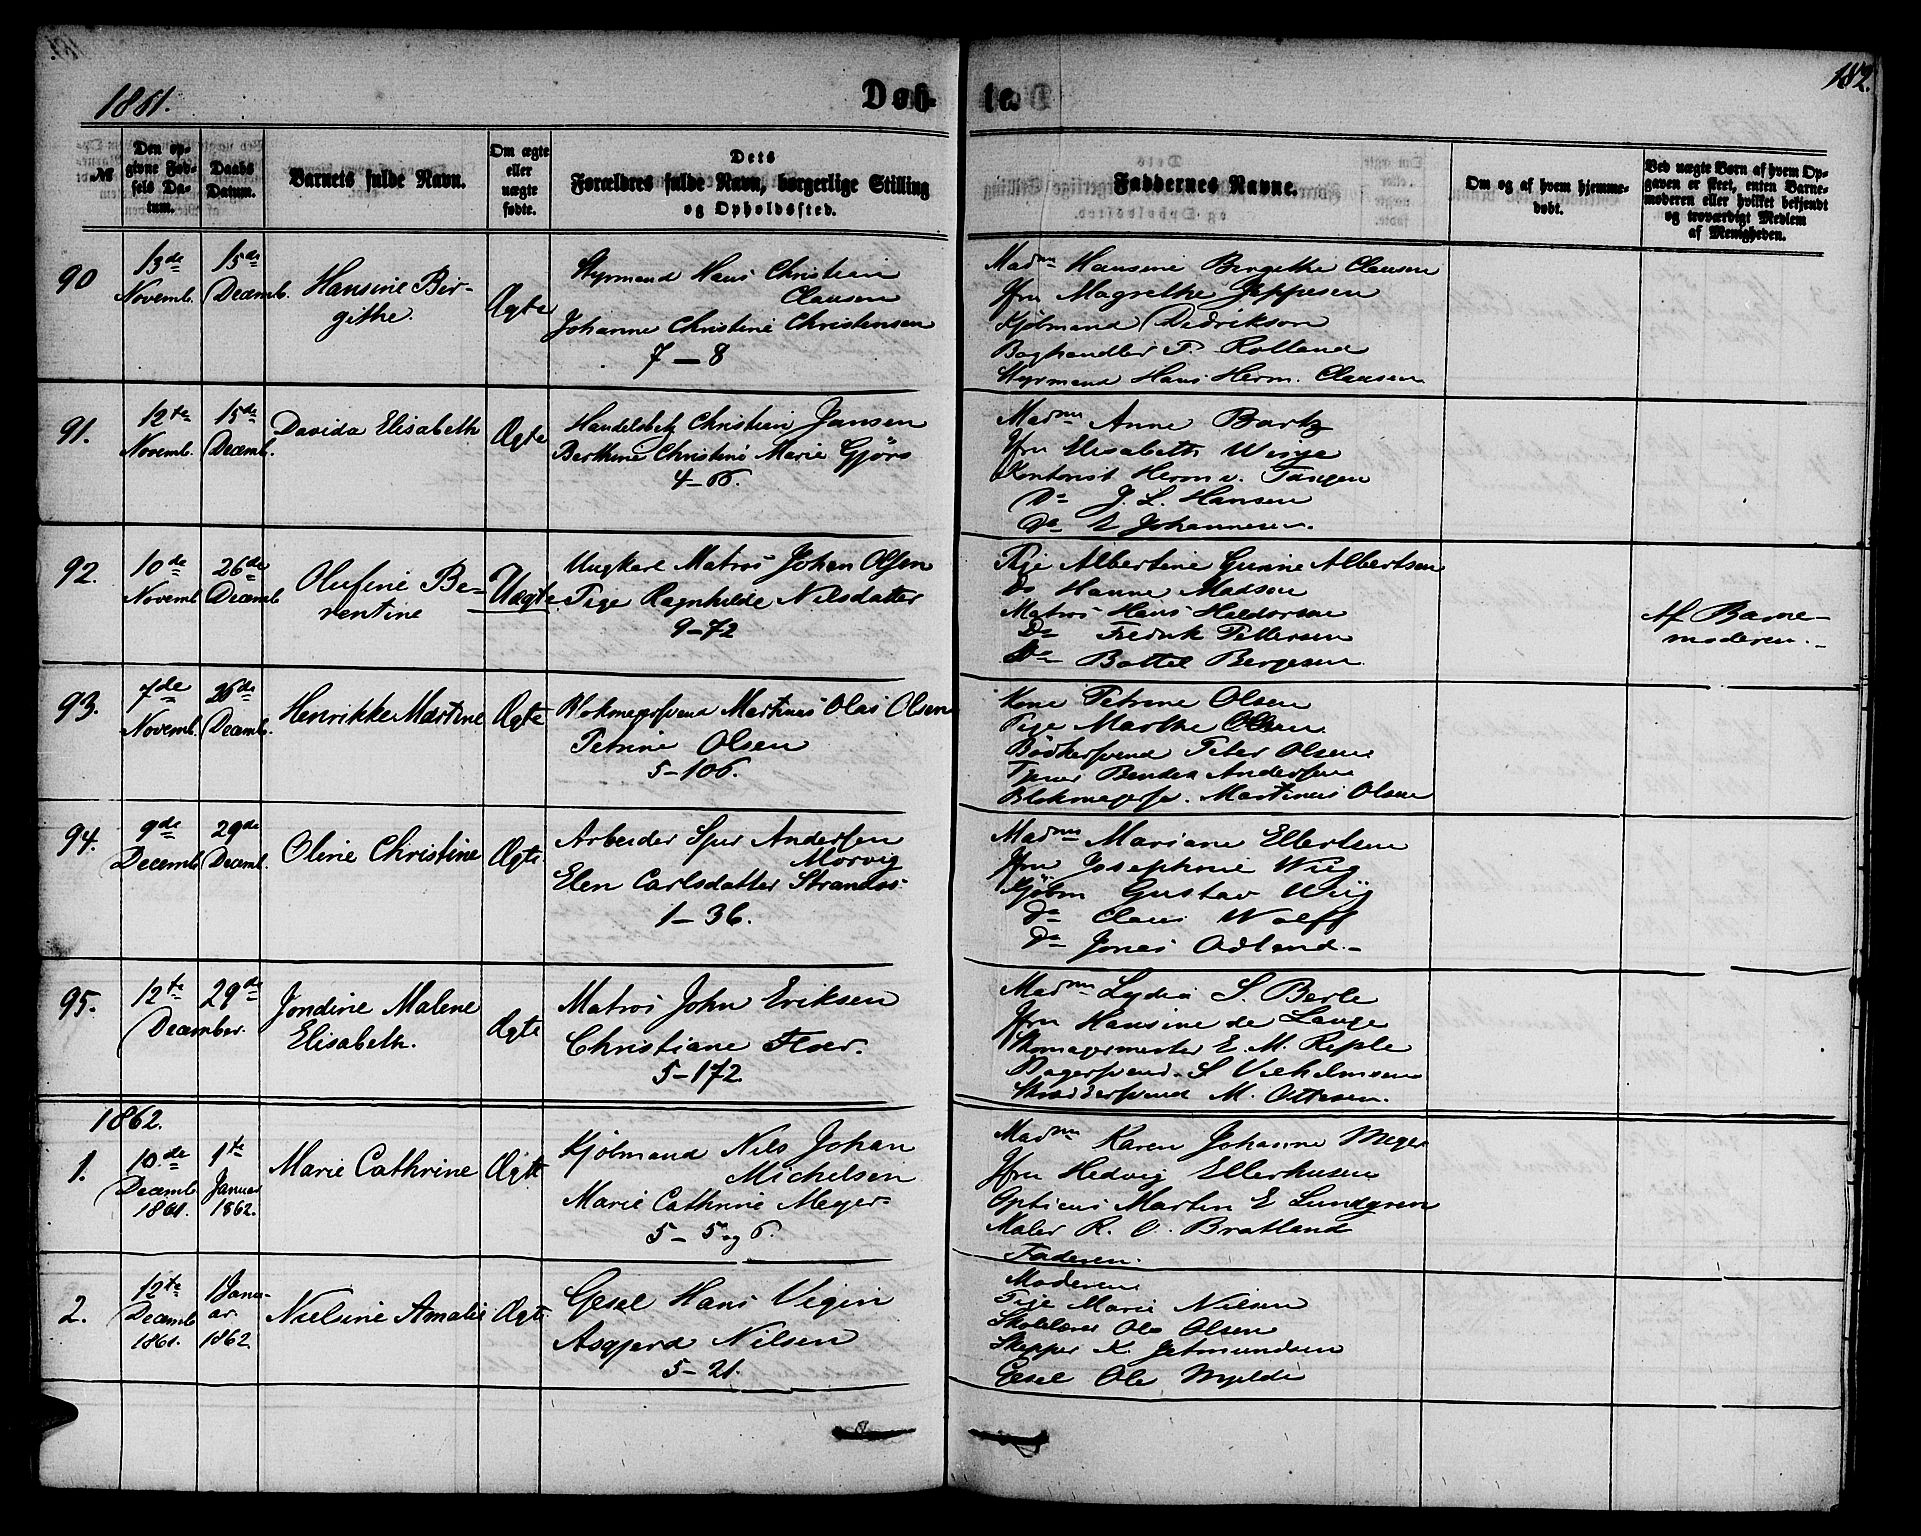 1861.
Døb-
te.
182.
№
Den op-
givne Fød-
sels Da-
tum.
Daabs
Datum.
Barnets fulde Navn.
Om ægte
eller
uægte
fødte.
Dets
Forældres fulde Navn, borgerlige Stilling
og Opholdssted.
Faddernes Navne.
Om og af hvem hjemme-
døbt.
Ved uægte Børn af hvem Op-
gaven er skeet, enten Barne-
moderen eller hvilket bekjendt
og troværdigt Medlem
af Menigheden.
90
13de
Novemb.
15de
Decemb.
Hansine Bir-
githe.
Ægte
Styrmand Hans Christian
Clausen
Johanne Christine Christensen
7 — 8
Madme Hansine Birgithe Clausen
Jfru Magrethe Jeppesen
Kjølmand Didrikson
Boghandler F. Rolland
Styrmand Hans Herm. Clausen
91.
12te
Novemb.
15de
Decemb.
Davida Elisabeth
Ægte
Handelsbetj Christian Jansen
Berthine Christine Marie Gjørs
4-66.
Madme Anne Bartz
Jfru Elisabeth Winge
Kontorist Herm v. Tangen
Do J. L. Hansen
Do Johannesen.
92.
10de
Novemb
26de
Decemb
Olufine Be-
rentine
Uægte
Ungkarl Matros Johan Olsen
Pige Ragnhilde Nilsdatter
9-72
Pige Albertine Gurine Albertsen
Do Hanne Madsen
Matros Hans Haldorsen
Do Fredrik Pettersen
Do Bottel Bergesen.
Af Barne-
moderen.-
93.
7de
Novemb.
26de
Decemb.
Henrikke Martine
Ægte
Blokmagersvend Martinus Olai Olsen
Petrine Olsen
5-106.
Kone Petrine Olsen
Pige Marthe Olsen
Bødkersvend Peter Olsen
Tjener Bendix Andersen
Blokmagersv. Martinus Olsen
94.
9de
Decemb
29de
Decemb.
Oline Christine
Ægte
Arbeider Sjur Andersen
Morvig
Elen Carlsdatter Strandos
1-36.
Madme Mariane Ellertsen
Jfru Josephine Wiig
Kjøbm Gustav Wiig
Do Claus Wolff
Do Jonas Odland.-
95.
12te
December.
29de
Jondine Malene
Elisabeth.
Ægte
Matros John Eriksen
Christiane Floer.
5-172.
Madme Lydia S. Berle
Jfru Hansine de Lange
Skomagermester E. M. Reple
Bagersvend S Vilhelmsen
Skræddersvend M. Ottesen.
1862.
1.
10de
Decemb
1861.
1te
Januar
1862.
Marie Cathrine
Ægte
Kjølmand Nils Johan
Michelsen
Marie Cathrine Meyer
5-5 og 6.
Madme Karen Johanne Meyer
Jfru Hedvig Ellerhusen
Opticus Martin E Lundgren
Maler R. O. Bratland
Faderen.
2.
12te
Decemb
1861.
1 Janu-
ar
1862
Nielsine Amalie
Ægte
Gesel Hans Vigin
Asgjerd Nilsen
5-21.
Moderen
Pige Marie Nilsen
Skolelærer Ole Olsen
Skipper K. Jetmundsen
Gesel Ole Mjelde